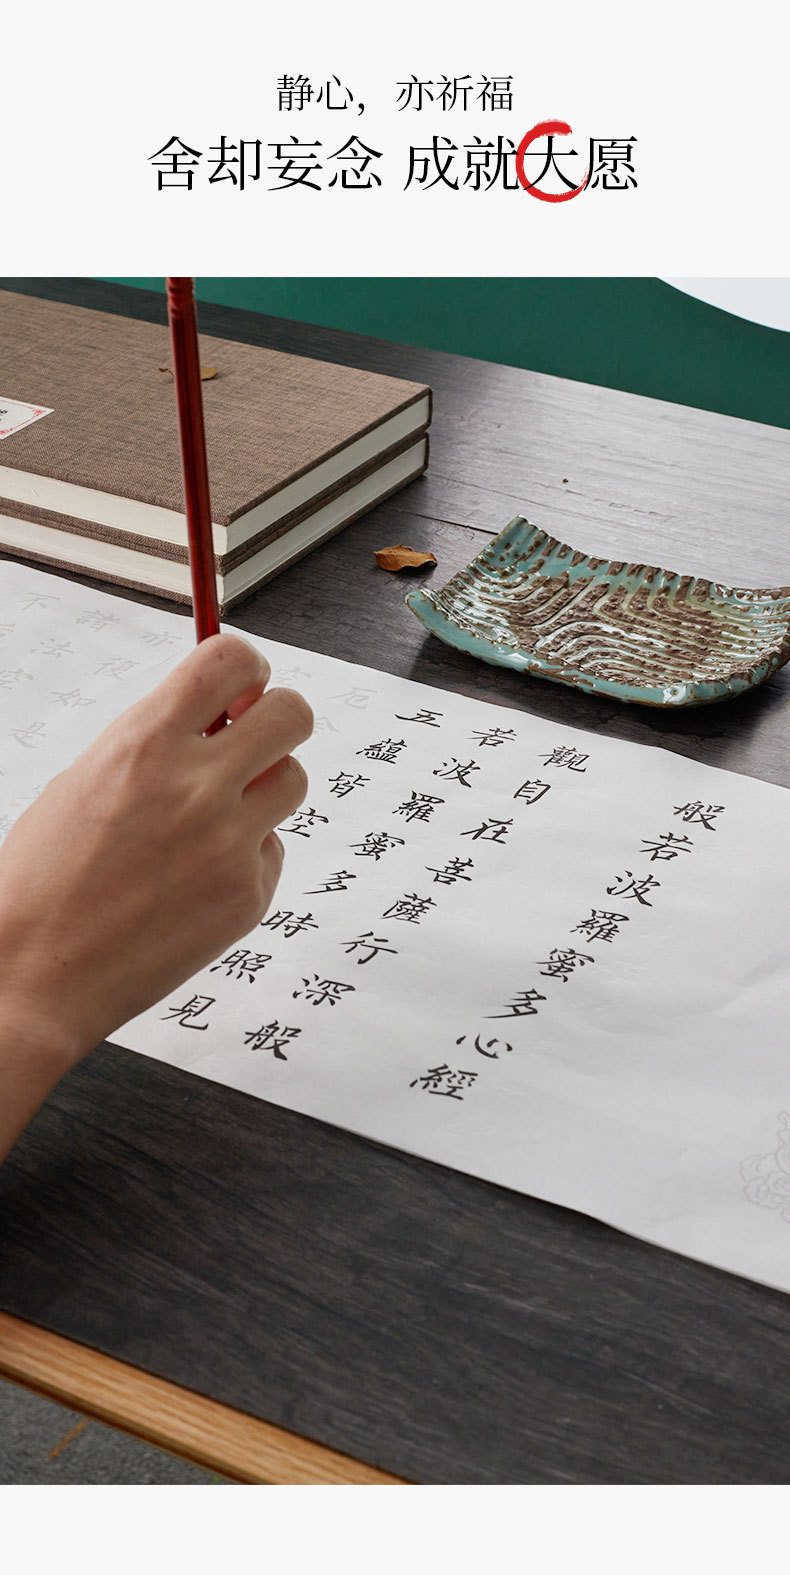 静心，亦祈福
舍却妄念 成就大愿
般若波羅蜜多心經
觀自在菩薩行深般
若波羅蜜多時照見
五蘊皆空
厄舍
空
亦復如是
諸法空
不